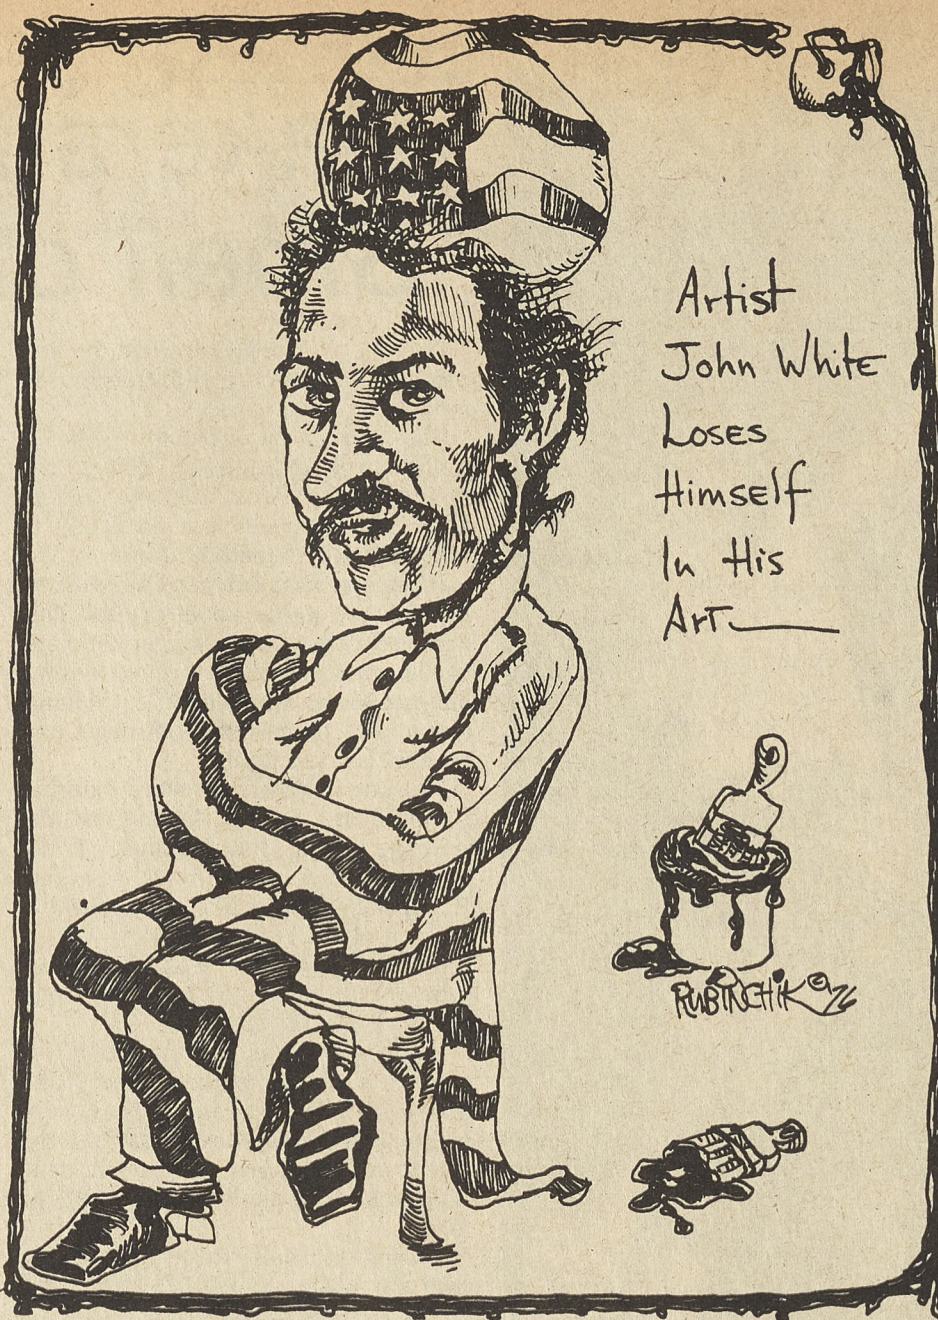 Artist
John White
Loses
Himself
In His
Art
RUBINCHIK © 76